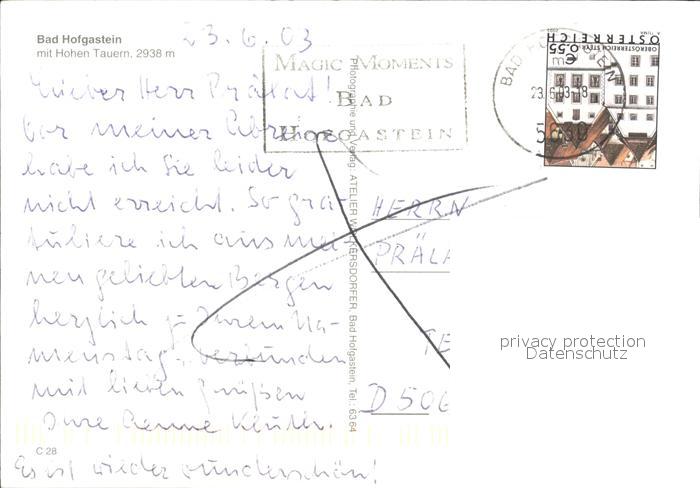 Bad Hofgastein
mit Hohen Tauern, 2938 m
23.6.03
Lieber Herr Prälat!
Vor meiner Abreise
habe ich Sie leider
nicht erreicht. So gra-
tuliere ich aus mei-
nen geliebten Bergen
herzlich z. Ihrem Na-
menstag, verbunden
mit lieben Grüßen
Ihre
Es ist wieder wunderschön!
C 28
MAGIC MOMENTS
BAD
HOFGASTEIN
Photographie und Verlag: ATELIER WOLKERSDORFER, Bad Hofgastein, Tel.: 63 64
BAD HOFGASTEIN
23.6.03-18
5630
ÖSTERREICH
€ 0,55
OBERÖSTERREICH STEYR
HERRN
PRÄLA
TE
D 506
privacy protection
Datenschutz